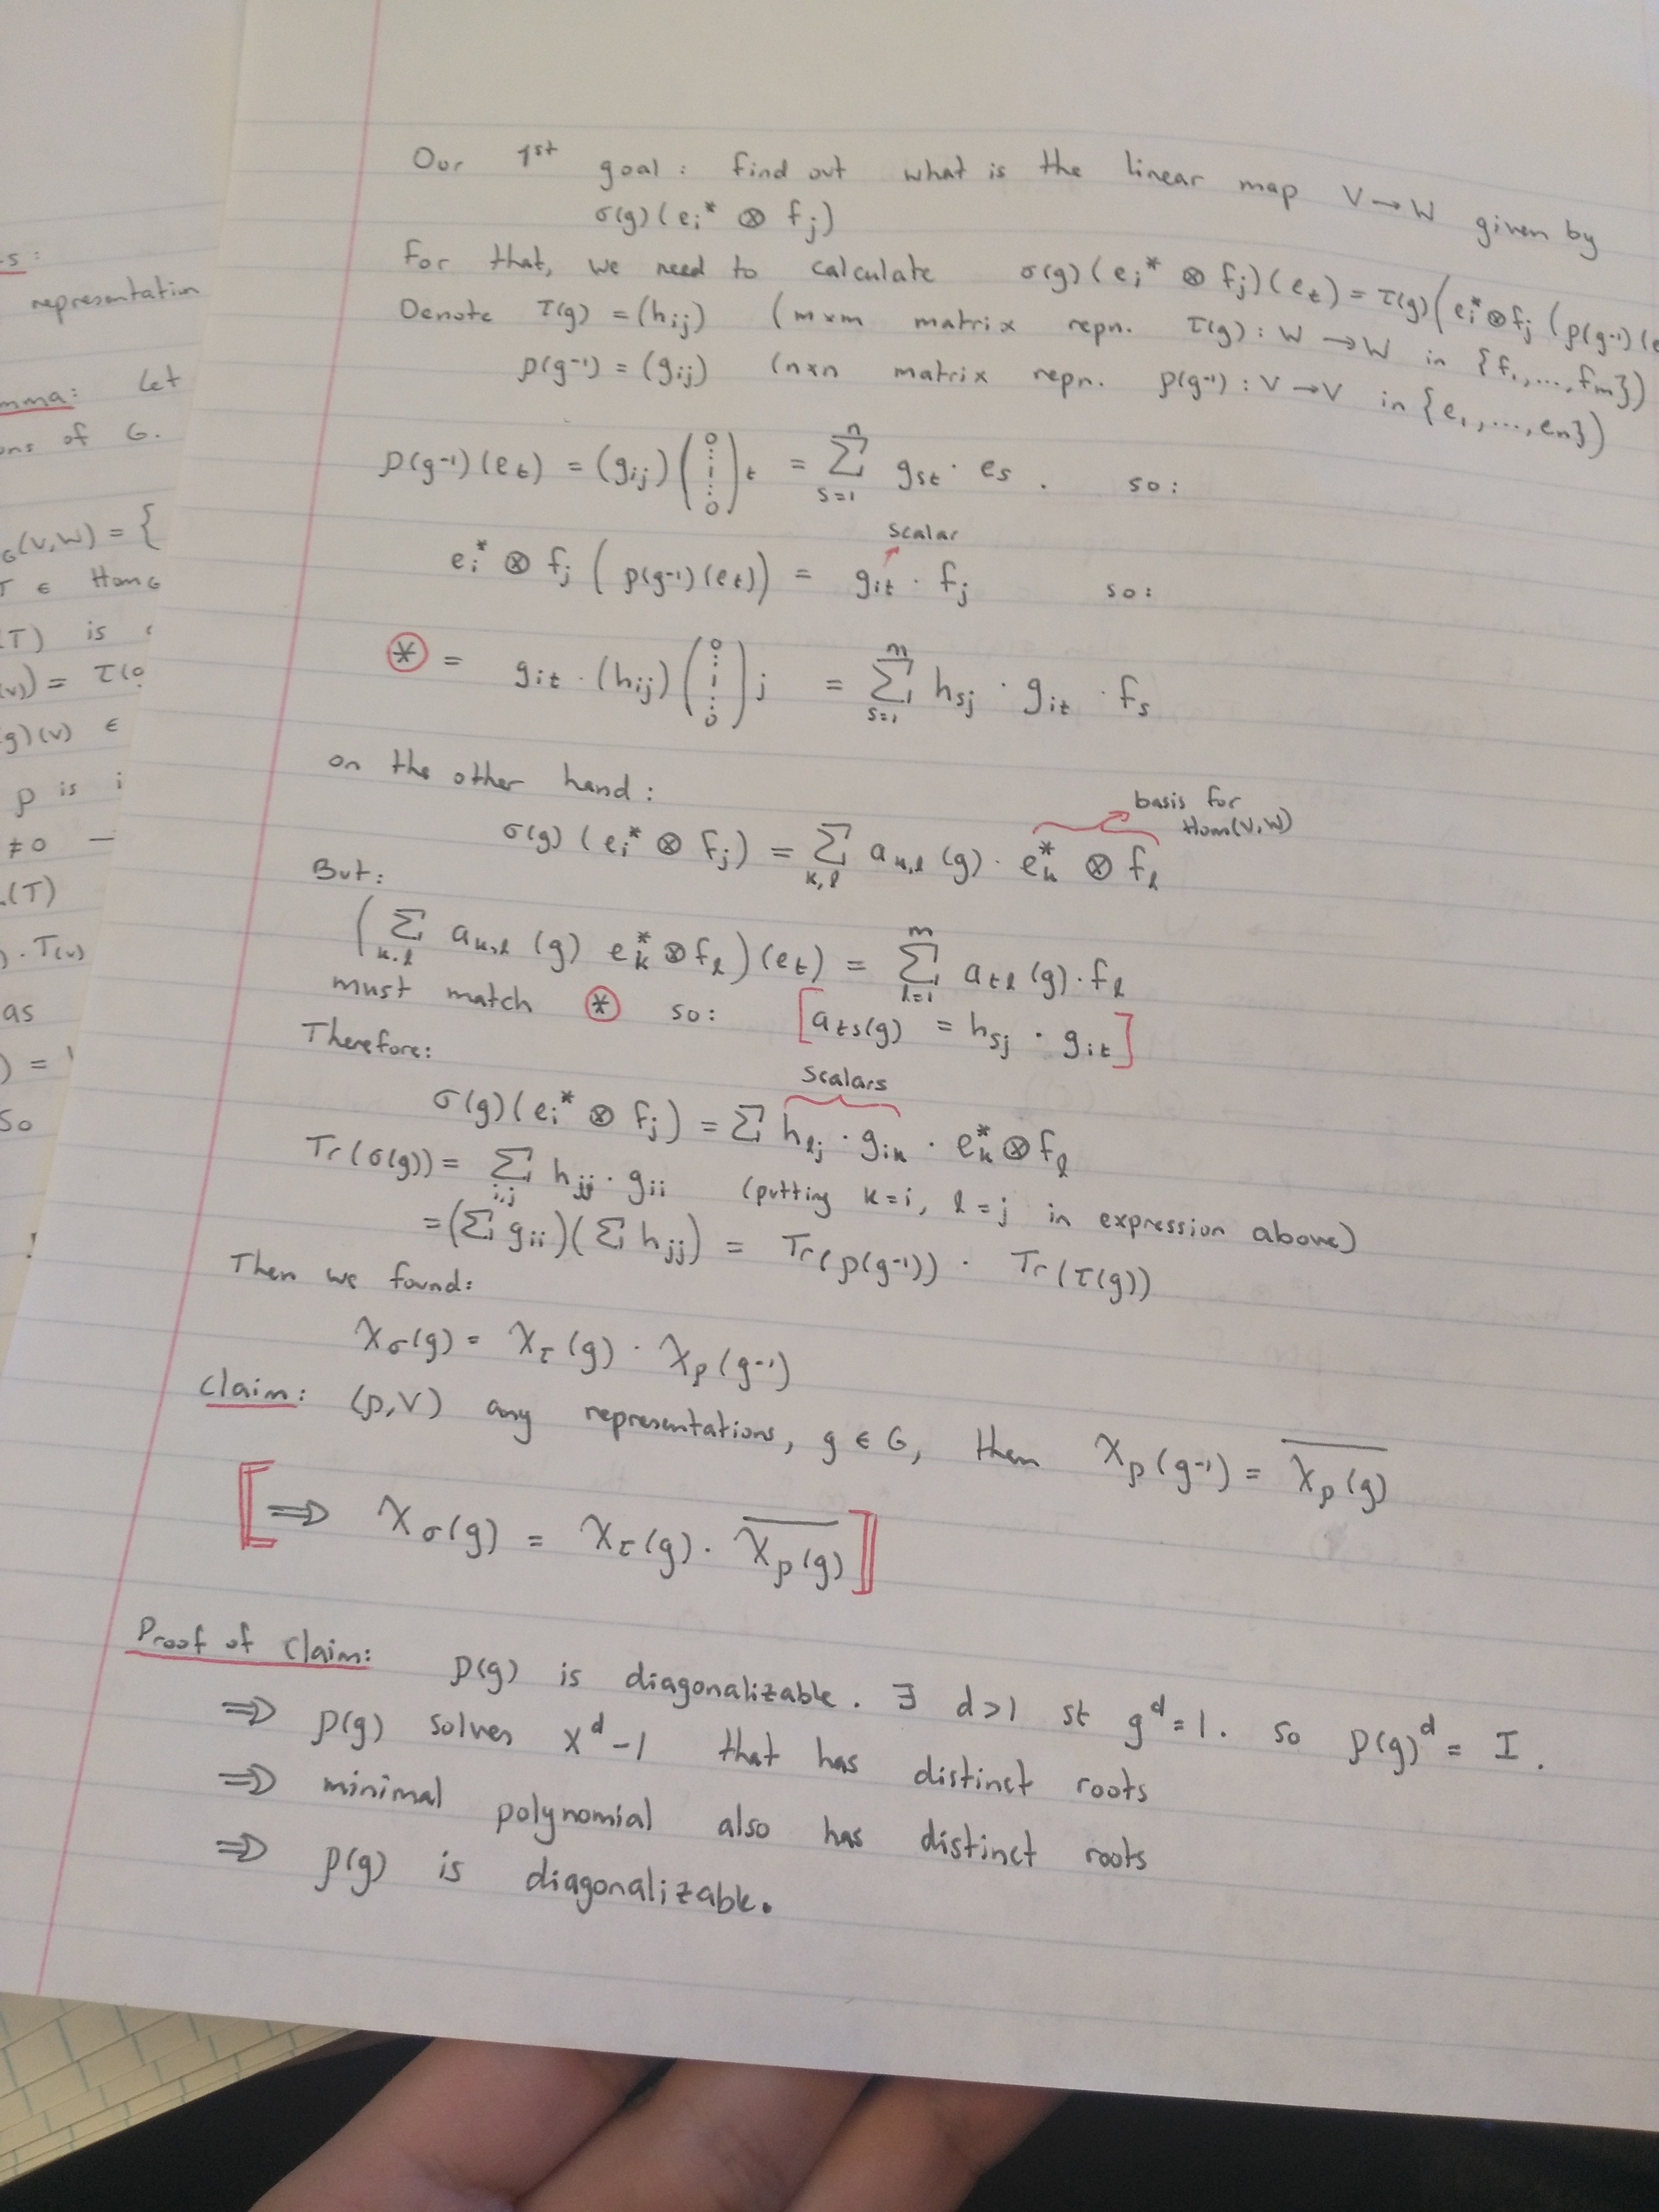 Our 1st goal: find out what is the linear map V→W given by
σ(g)(ei* ⊗ fj)
For that, we need to calculate σ(g)(ei* ⊗ fj)(et) = τ(g)(ei*⊗fj (ρ(g-1)(e
Denote τ(g) = (hij) (m×m matrix repn. τ(g): W→W in {f1,...,fm})
ρ(g-1) = (gij) (n×n matrix repn. ρ(g-1): V→V in {e1,...,en})
ρ(g-1)(et) = (gij)(0 ⋮ 1 ⋮ 0)t = Σ_{s=1}^{n} gst · es . so:
scalar
ei* ⊗ fj (ρ(g-1)(et)) = git · fj so:
⊛ = git · (hij)(0 ⋮ 1 ⋮ 0)j = Σ_{s=1}^{m} hsj · git · fs
on the other hand:
basis for
Hom(V,W)
σ(g)(ei* ⊗ fj) = Σ_{k,l} ak,l(g) · ek* ⊗ fl
But:
(Σ_{k,l} ak,l(g) ek*⊗fl)(et) = Σ_{l=1}^{m} atl(g)·fl
must match ⊛ so: [ats(g) = hsj · git]
Therefore:
scalars
σ(g)(ei* ⊗ fj) = Σ hlj · gik · ek*⊗fl
Tr(σ(g)) = Σ_{i,j} hjj · gii (putting k=i, l=j in expression above)
=(Σ gii)(Σ hjj) = Tr(ρ(g-1)) · Tr(τ(g))
Then we found:
χσ(g) = χτ(g) · χρ(g-1)
Claim: (ρ,V) any representations, g ∈ G, then χρ(g-1) = \overline{χρ(g)}
[⇒ χσ(g) = χτ(g) · \overline{χρ(g)}]
Proof of Claim: ρ(g) is diagonalizable. ∃ d>1 st g^d=1. so ρ(g)^d = I.
⇒ ρ(g) solves x^d-1 that has distinct roots
⇒ minimal polynomial also has distinct roots
⇒ ρ(g) is diagonalizable.
s:
representation
mma: Let
ons of G.
G(V,W) = {
T ∈ HomG
(T) is
(v) = τ(
g)(v) ∈
ρ is i
≠0 —
(T)
). T(v)
as
) =
So